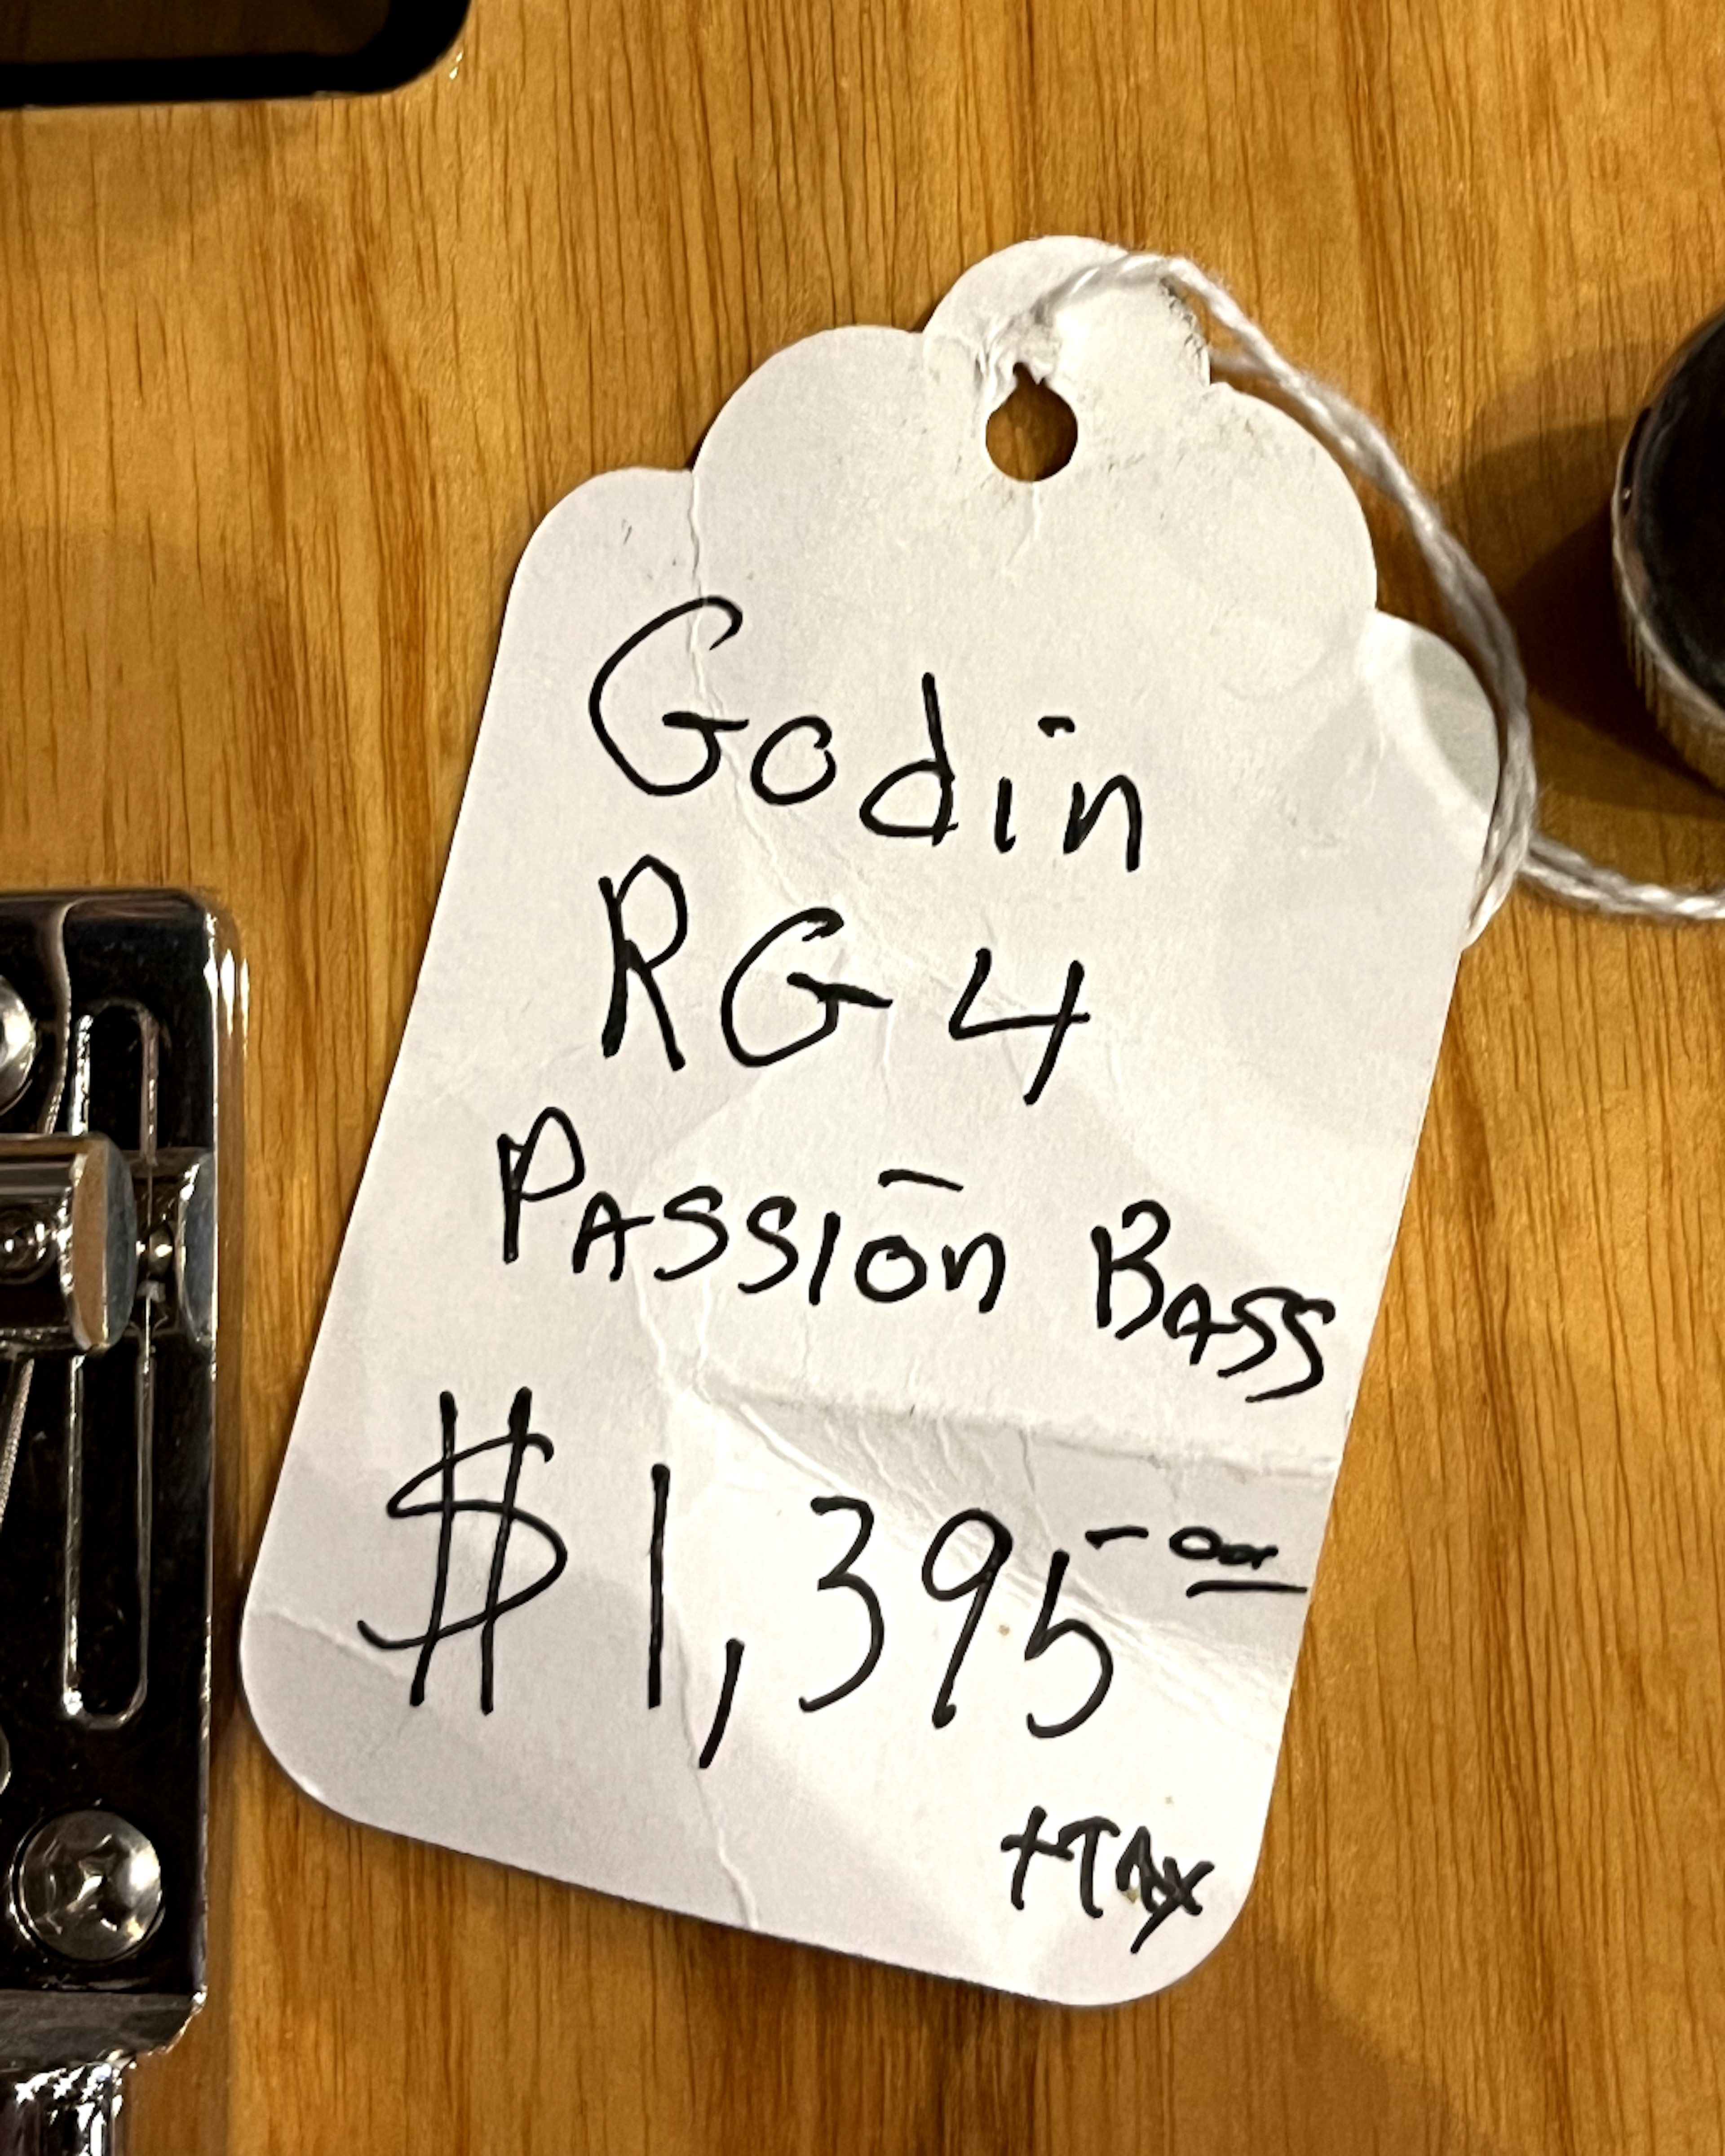 Godin
RG4
PASSION BASS
$1,395-00
+TAX